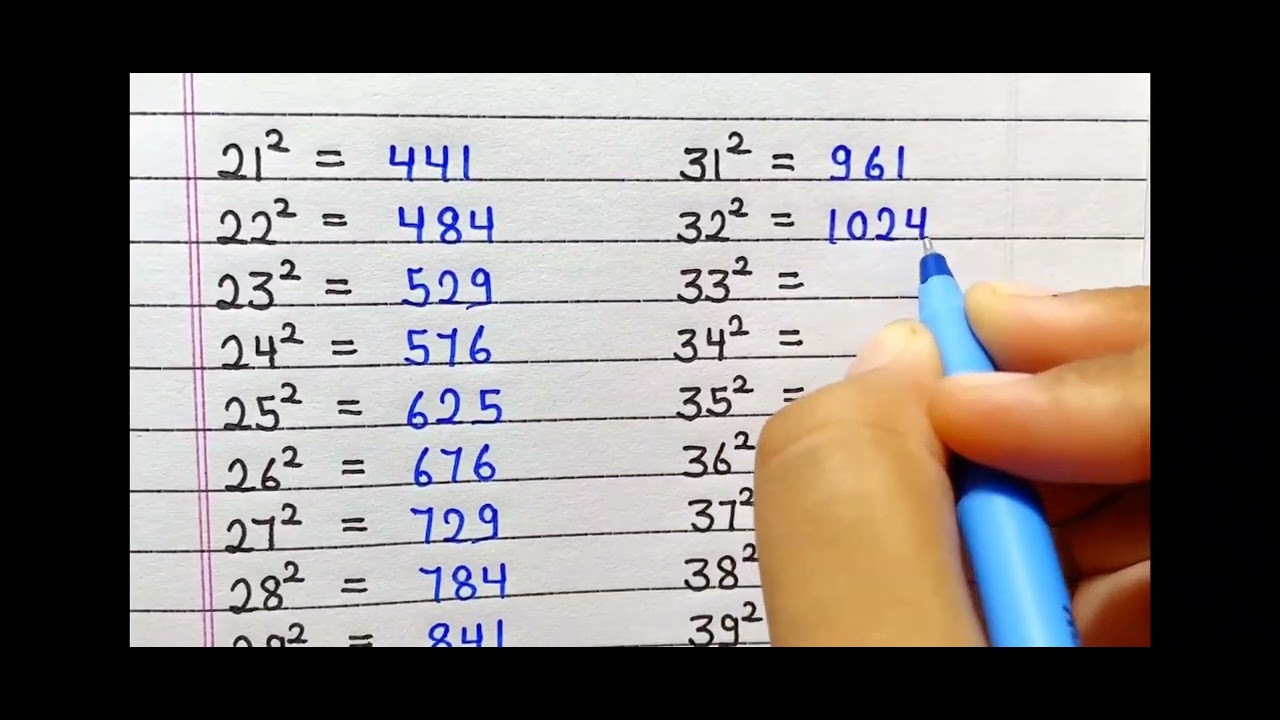 21² = 441
22² = 484
23² = 529
24² = 576
25² = 625
26² = 676
27² = 729
28² = 784
29² = 841
31² = 961
32² = 1024
33² =
34² =
35² =
36²
37²
38²
39²